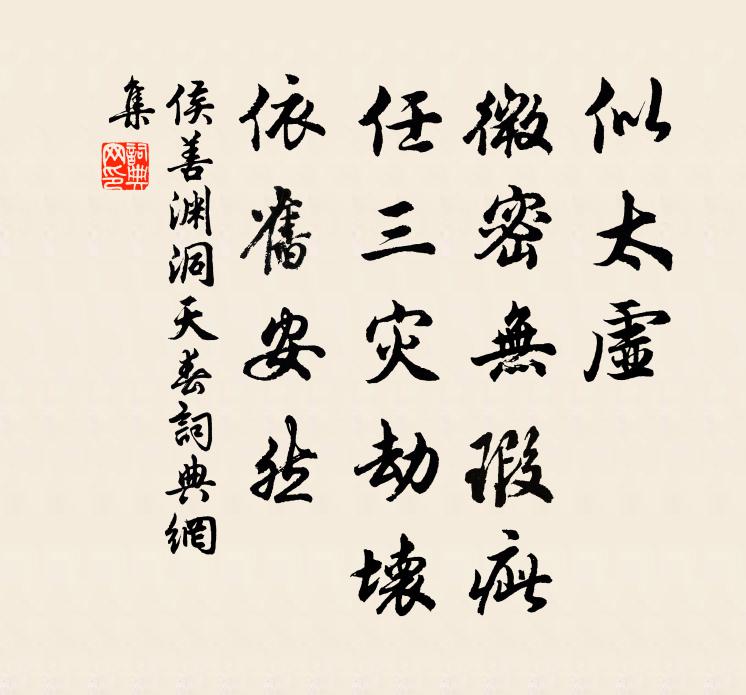 似太虛
微密無瑕疵
任三灾劫壞
依舊安然
侯善渊洞天春詞典網
集
詞典網印